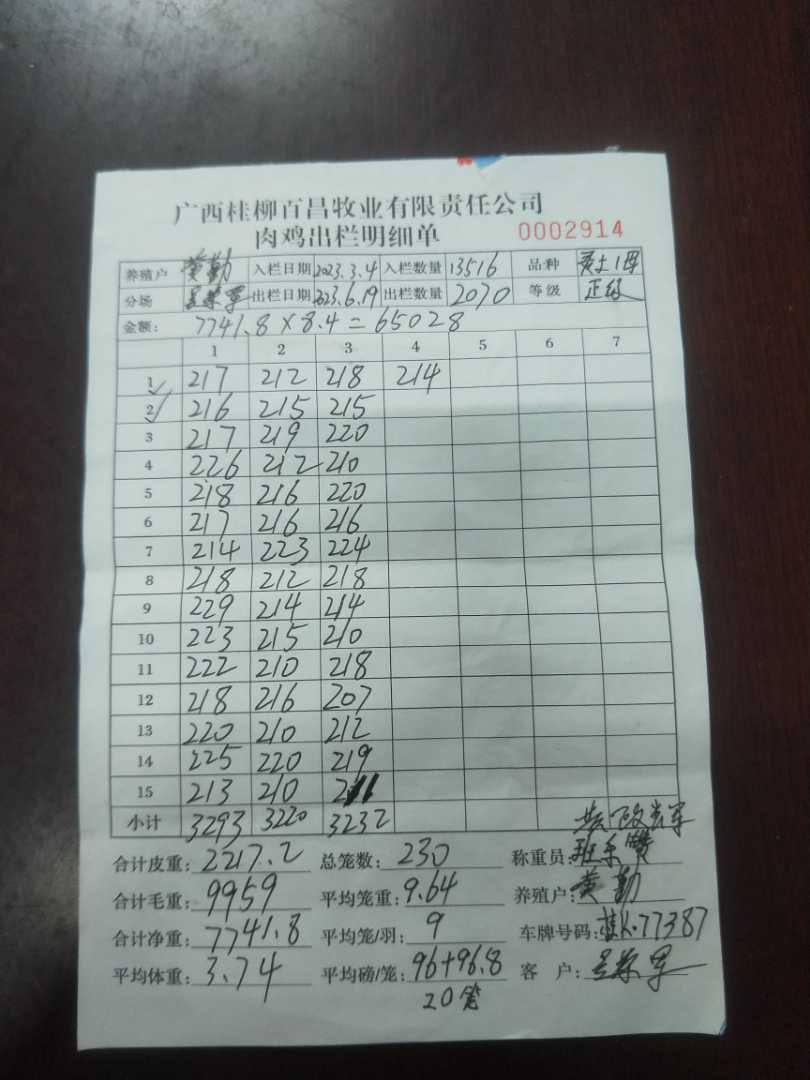 广西桂柳百昌牧业有限责任公司
肉鸡出栏明细单 0002914
养殖户 黄勤 入栏日期 2023.3.4 入栏数量 13516 品种
分场 出栏日期 2023.6.19 出栏数量 2070 等级 正级
金额: 7741.8×8.4=65028
1 2 3 4 5 6 7
1 217 212 218 214
2 216 215 215
3 217 219 220
4 226 212 210
5 218 216 220
6 217 216 216
7 214 223 224
8 218 212 218
9 229 214 214
10 223 215 210
11 222 210 218
12 218 216 207
13 220 210 212
14 225 220 219
15 213 210 211
小计 3293 3220 3232
合计皮重: 2217.2 总笼数: 230 称重员:
合计毛重: 9959 平均笼重: 9.64 养殖户: 黄勤
合计净重: 7741.8 平均笼/羽: 9 车牌号码: 桂K·77387
平均体重: 3.74 平均磅/笼: 96+96.8 客 户:
20笼